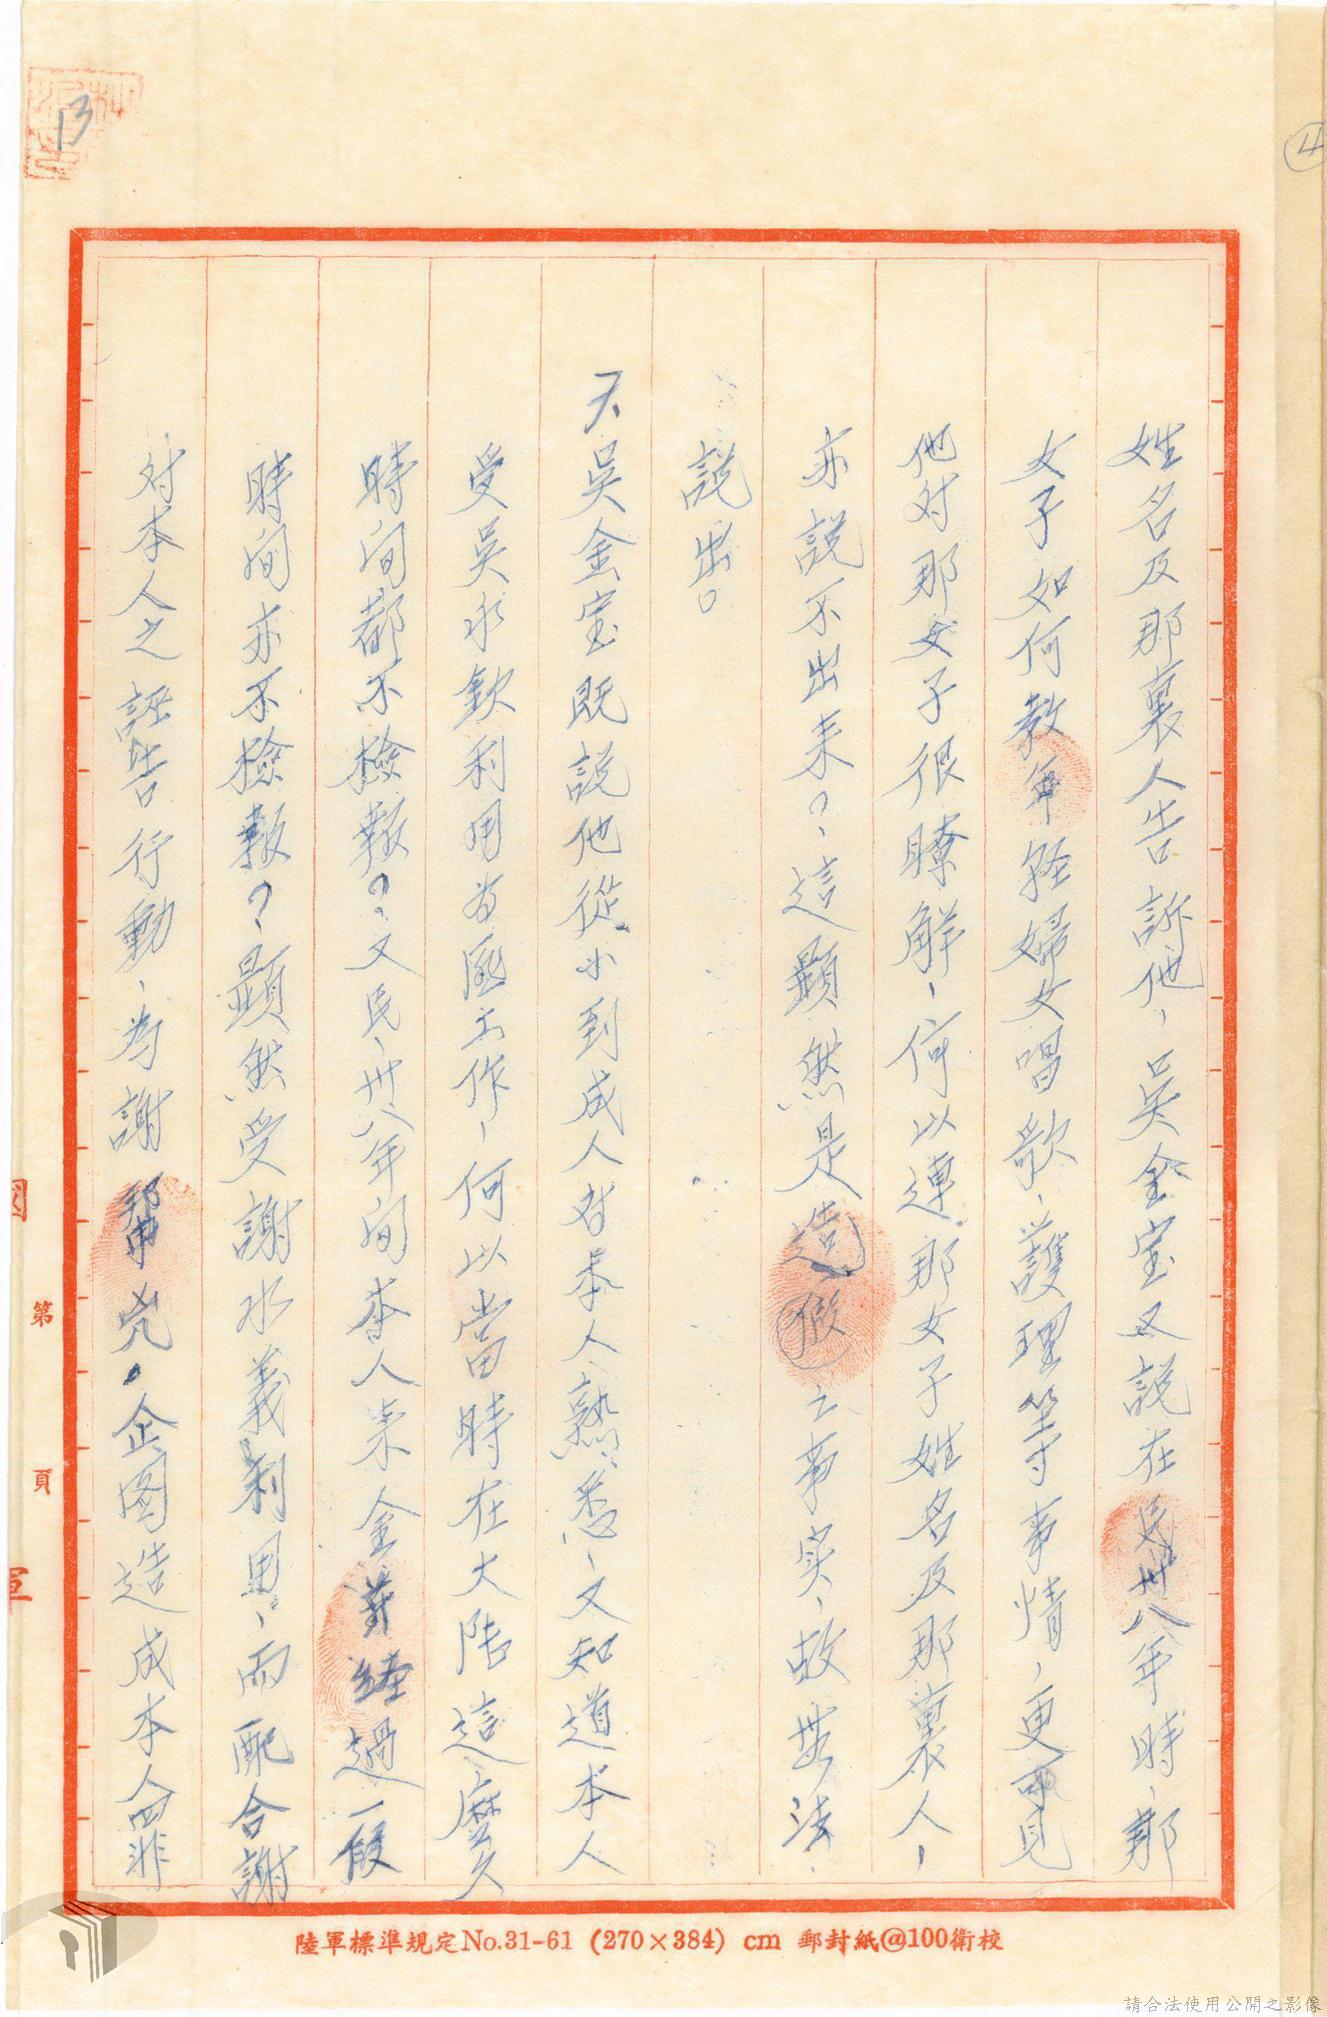 ④
13
姓名及那裏人告訴他，吳金宝又說在民卅八年時，那
女子如何教年輕婦女唱歌、護理等事情，更可見
他对那女子很瞭解，何以連那女子姓名及那裏人，
亦說不出来？這顯然是造假之事实，故無法
說出。
天吳金宝既說他從小到成人对本人熟悉，又知道本人
受吳水欽利用为匪工作，何以當時在大陸這麼久
時间都不檢報？又民卅八年间本人来金門經過一段
時间亦不檢報？顯然受謝水義利用，而配合謝
对本人之誣告行動，為謝幫兇。企图造成本人罪
第 頁
陸軍標準規定No.31-61 (270×384) cm 郵封紙@100衛校
請合法使用公開之影像